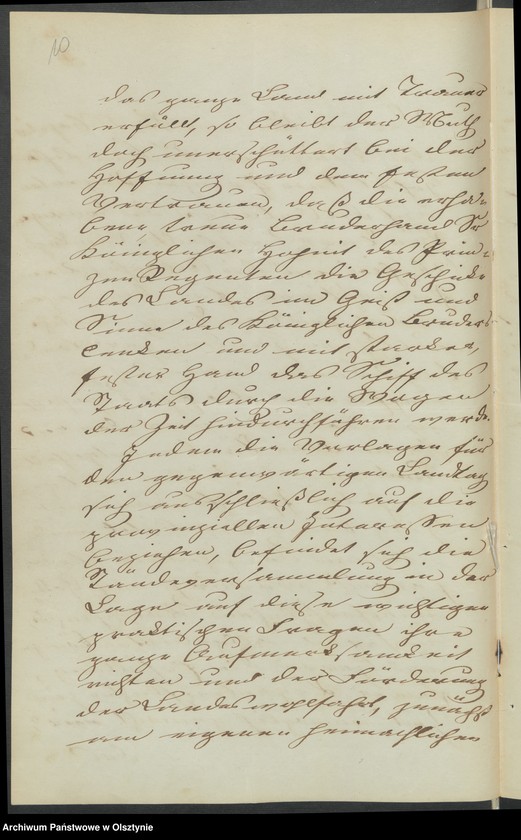 10
das ganze Land mit Trauer
erfüllt, so bleibt der Muth
doch unerschüttert bei der
Hoffnung und dem festen
Vertrauen, daß die erha-
bene treue Bruderhand Sr
Königlichen Hoheit des Prin-
zen Regenten die Geschicke
des Landes im Geist und
Sinne des Königlichen Bruders
lenken und mit starker,
fester Hand das Schiff des
Staats durch die Wogen
der Zeit hindurchführen werde.
Indem die Vorlagen für
den gegenwärtigen Landtag
sich ausschließlich auf die
provinziellen Interessen
beziehen, befindet sich die
Ständeversammlung in der
Lage auf diese wichtigen
praktischen Fragen ihre
ganze Aufmerksamkeit
richten und der Förderung
der Landeswohlfahrt, zunächst
am eigenen heimathlichen
Archiwum Państwowe w Olsztynie